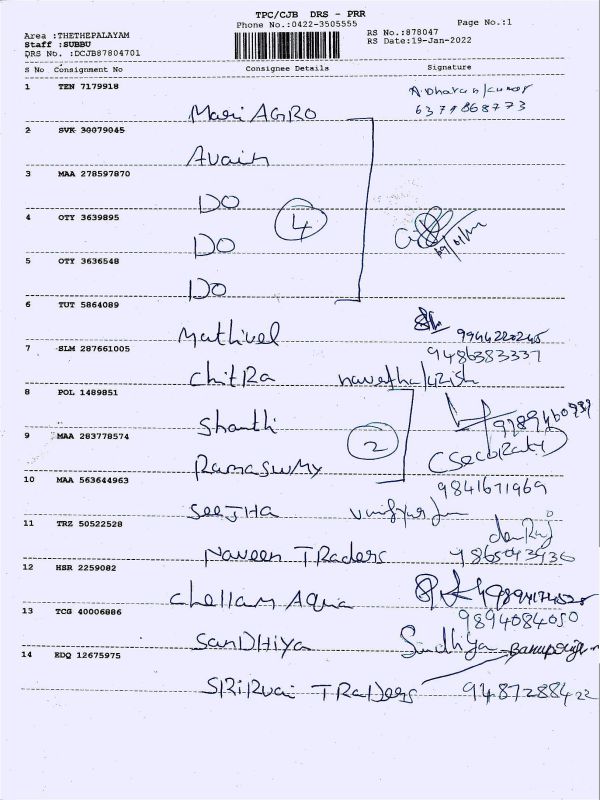 TPC/CJB DRS - PRR
Phone No.:0422-3505555
Page No.:1
Area :THETHEPALAYAM
Staff :SUBBU
DRS No. :DCJB87804701
RS No.:878047
RS Date:19-Jan-2022
S No Consignment No Consignee Details Signature
1 TEN 7179918
Mari AGRO
6371868773
2 SVK 30079045
3 MAA 278597870
DO
4
4 OTY 3639895
DO
5 OTY 3636548
DO
6 TUT 5864089
Mathivel
7 SLM 287661005
9486383337
ChitRa
8 POL 1489851
Shanthi
9 MAA 283778574
2
RamaswMy
10 MAA 563644963
9841671969
SeeJHa
11 TRZ 50522528
Naveen TRaders
12 HSR 2259082
Chellam Aqua
13 TCG 40006886
9894084050
SanDHiya
Sandhiya
14 EDQ 12675975
TRaDers
9487288422